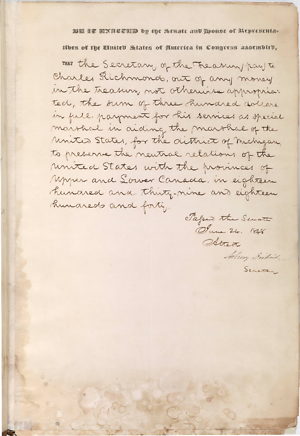 BE IT ENACTED by the Senate and House of Representa-
tives of the United States of America in Congress assembled,
THAT the Secretary of the Treasury pay to
Charles Richmond, out of any money
in the treasury, not otherwise appropria-
ted, the sum of three hundred dollars
in full payment for his services as special
marshal in aiding the marshal of the
United States, for the district of Michigan
to preserve the neutral relations of the
United States with the provinces of
Upper and Lower Canada in eighteen
hundred and thirty-nine and eighteen
hundred and forty.
Passed the Senate
June 24. 1848
Attest
Asbury Dickins
Secretary